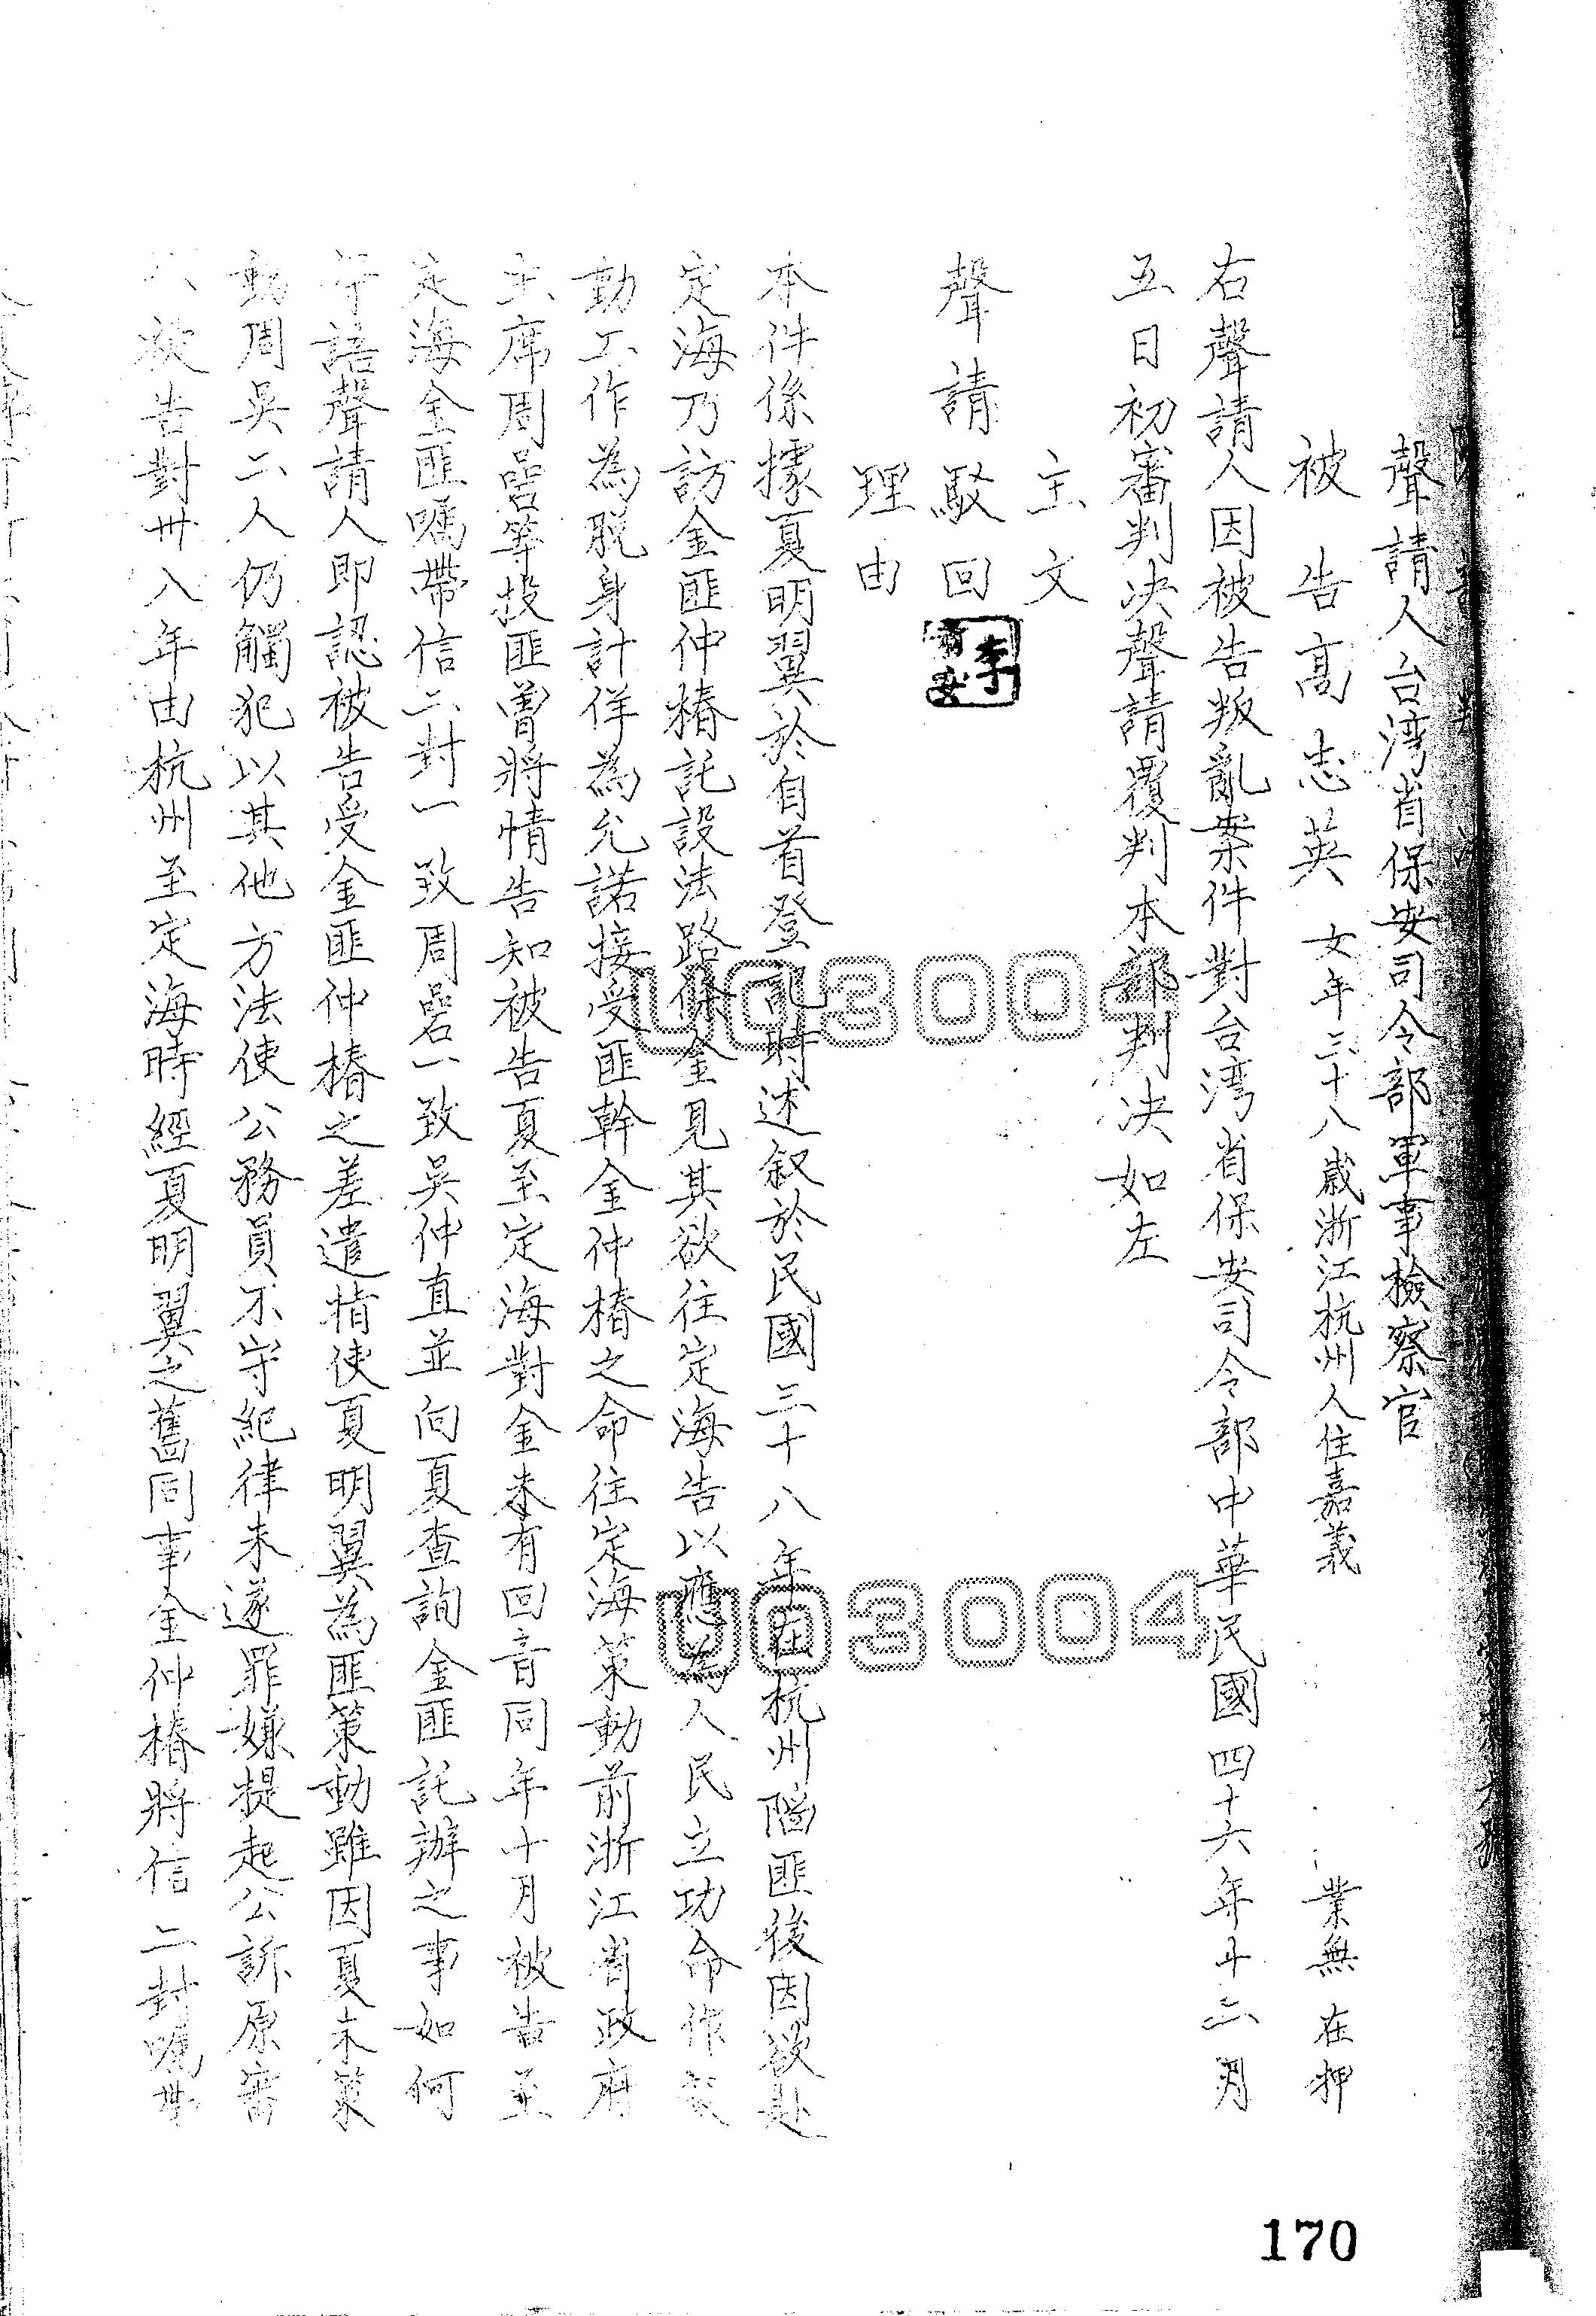 聲請人台湾省保安司令部軍事檢察官
被告高志英 女年三十八歲浙江杭州人住嘉義 業無在押
右聲請人因被告叛亂案件對台湾省保安司令部中華民國四十六年十二月
五日初審判决聲請覆判本部判决如左
主文
聲請駁回
理由
本件係據夏明翼於自首登記時述叙於民國三十八年在杭州陷匪後因欲赴
定海乃訪金匪仲椿託設法路條金見其欲往定海告以應為人民立功命作策
動工作為脫身計佯為允諾接受匪幹金仲椿之命往定海策動前浙江省政府
主席周喦等投匪曾將情告知被告夏至定海對金未有回音同年十月被告至
定海金匪嘱帶信二封一致周喦一致吳仲直並向夏查詢金匪託辦之事如何
等語聲請人即認被告受金匪仲椿之差遣指使夏明翼為匪策動雖因夏未策
動周吳二人仍觸犯以其他方法使公務員不守紀律未遂罪嫌提起公訴原審
以被告對卅八年由杭州至定海時經夏明翼之舊同事金仲椿將信二封嘱帶
170
UO3004
UO3004